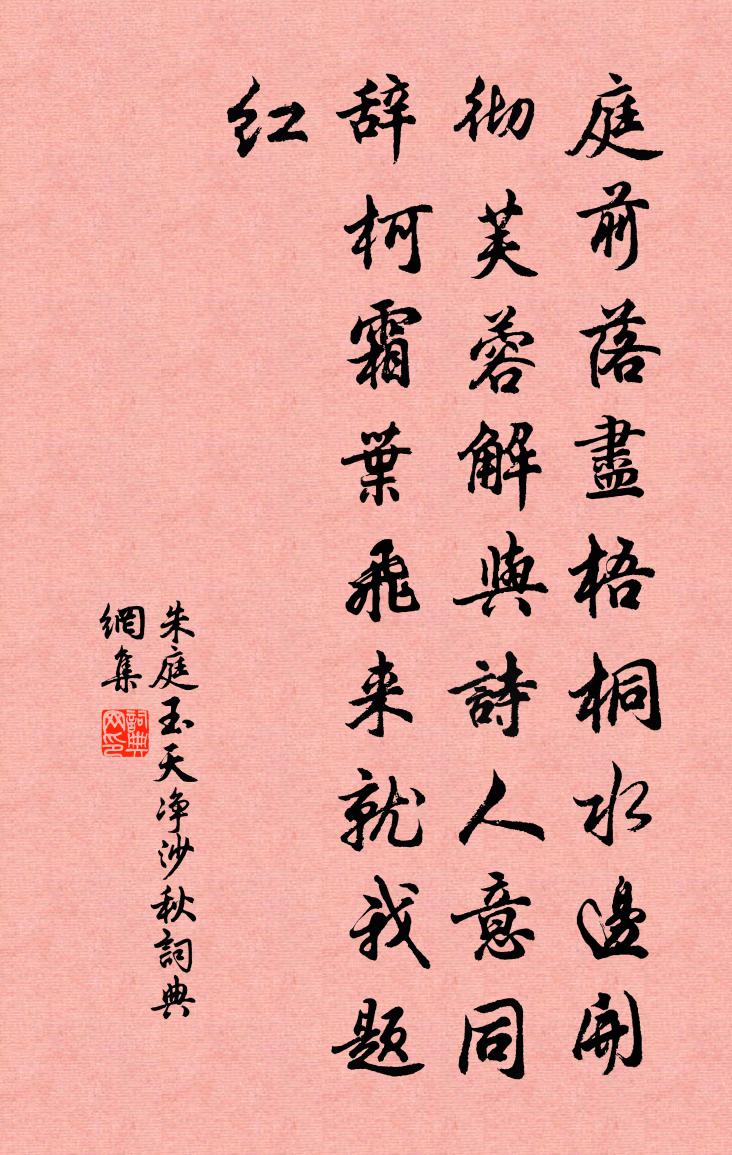 庭前落盡梧桐水邊開
彻芙蓉解與詩人意同
辞柯霜葉飛来就我題
红
朱庭玉天净沙秋詞典
網集
詞典网印